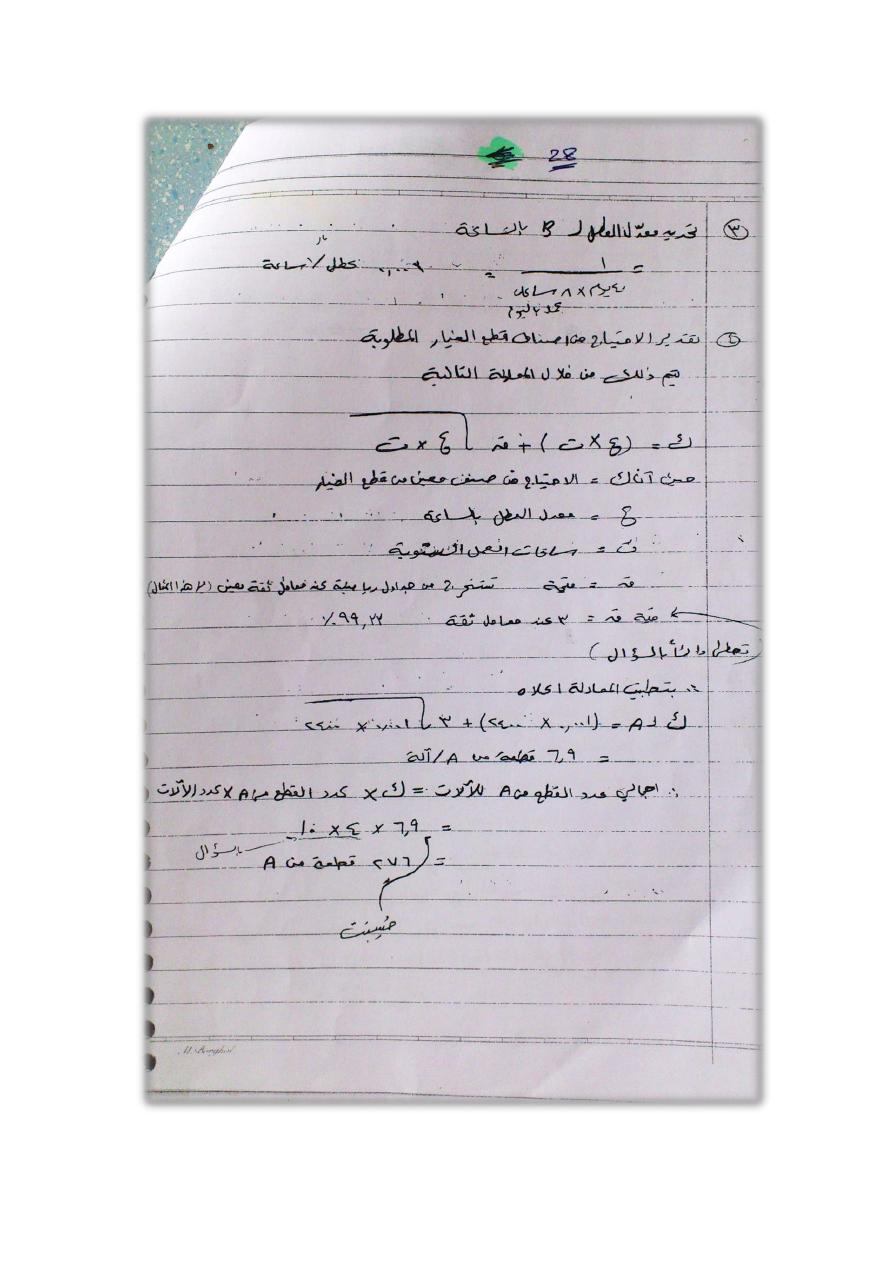 28
٣ تحديد معدل العطل لـ B بالساعة
= ١ / ٨ ساعات =
٤ تقدير الاحتياج من اصناف قطع الغيار المطلوبة
يتم ذلك من خلال المعادلة التالية
ك = (ع × ت) + قه √ ع × ت
حيث أن ك = الاحتياج من صنف معين من قطع الغيار
ع = معدل العطل بالساعة
ت = ساعات العمل السنوية
قه = قيمة تستخرج من جداول رياضية عند معامل ثقة معين (هذا المثال)
قيمة قه = ٣ عند معامل ثقة ٩٩,٢٢٪
بالسؤال)
∴ بتطبيق المعادلة اعلاه
ك لـ A = (٠,٠٠٠١ × ٢٤٠٠٠) + ٣ √ ٠,٠٠٠١ × ٢٤٠٠٠
= ٦,٩ قطعة من A/آلة
∴ اجمالي عدد القطع من A للآلات = ك × عدد القطع من A × عدد الآلات
= ٦,٩ × ٤ × ١٠
بالسؤال
= ٢٧٦ قطعة من A
حُسِبَت